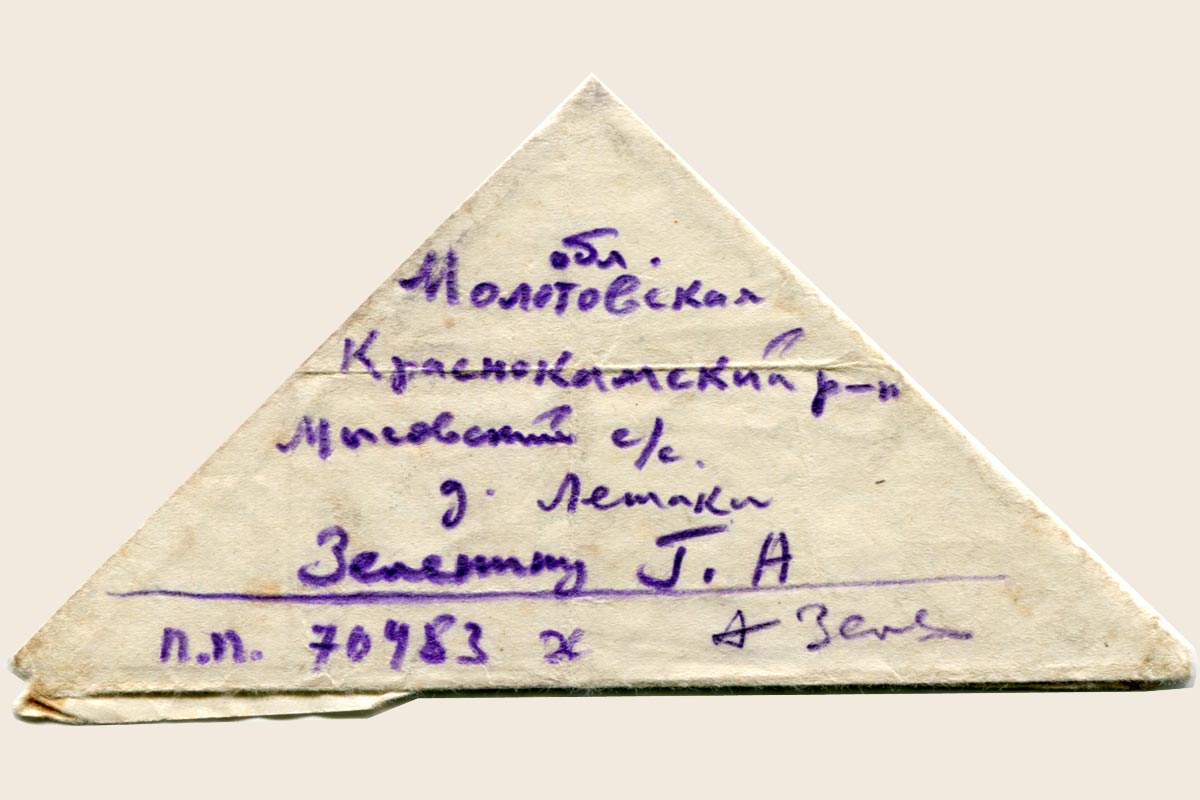 обл.
Молотовская
Краснокамский р-н
Мысовский с/с.
д. Летаки
Зеленину Г. А
п.п. 70483 ж
А Зеле